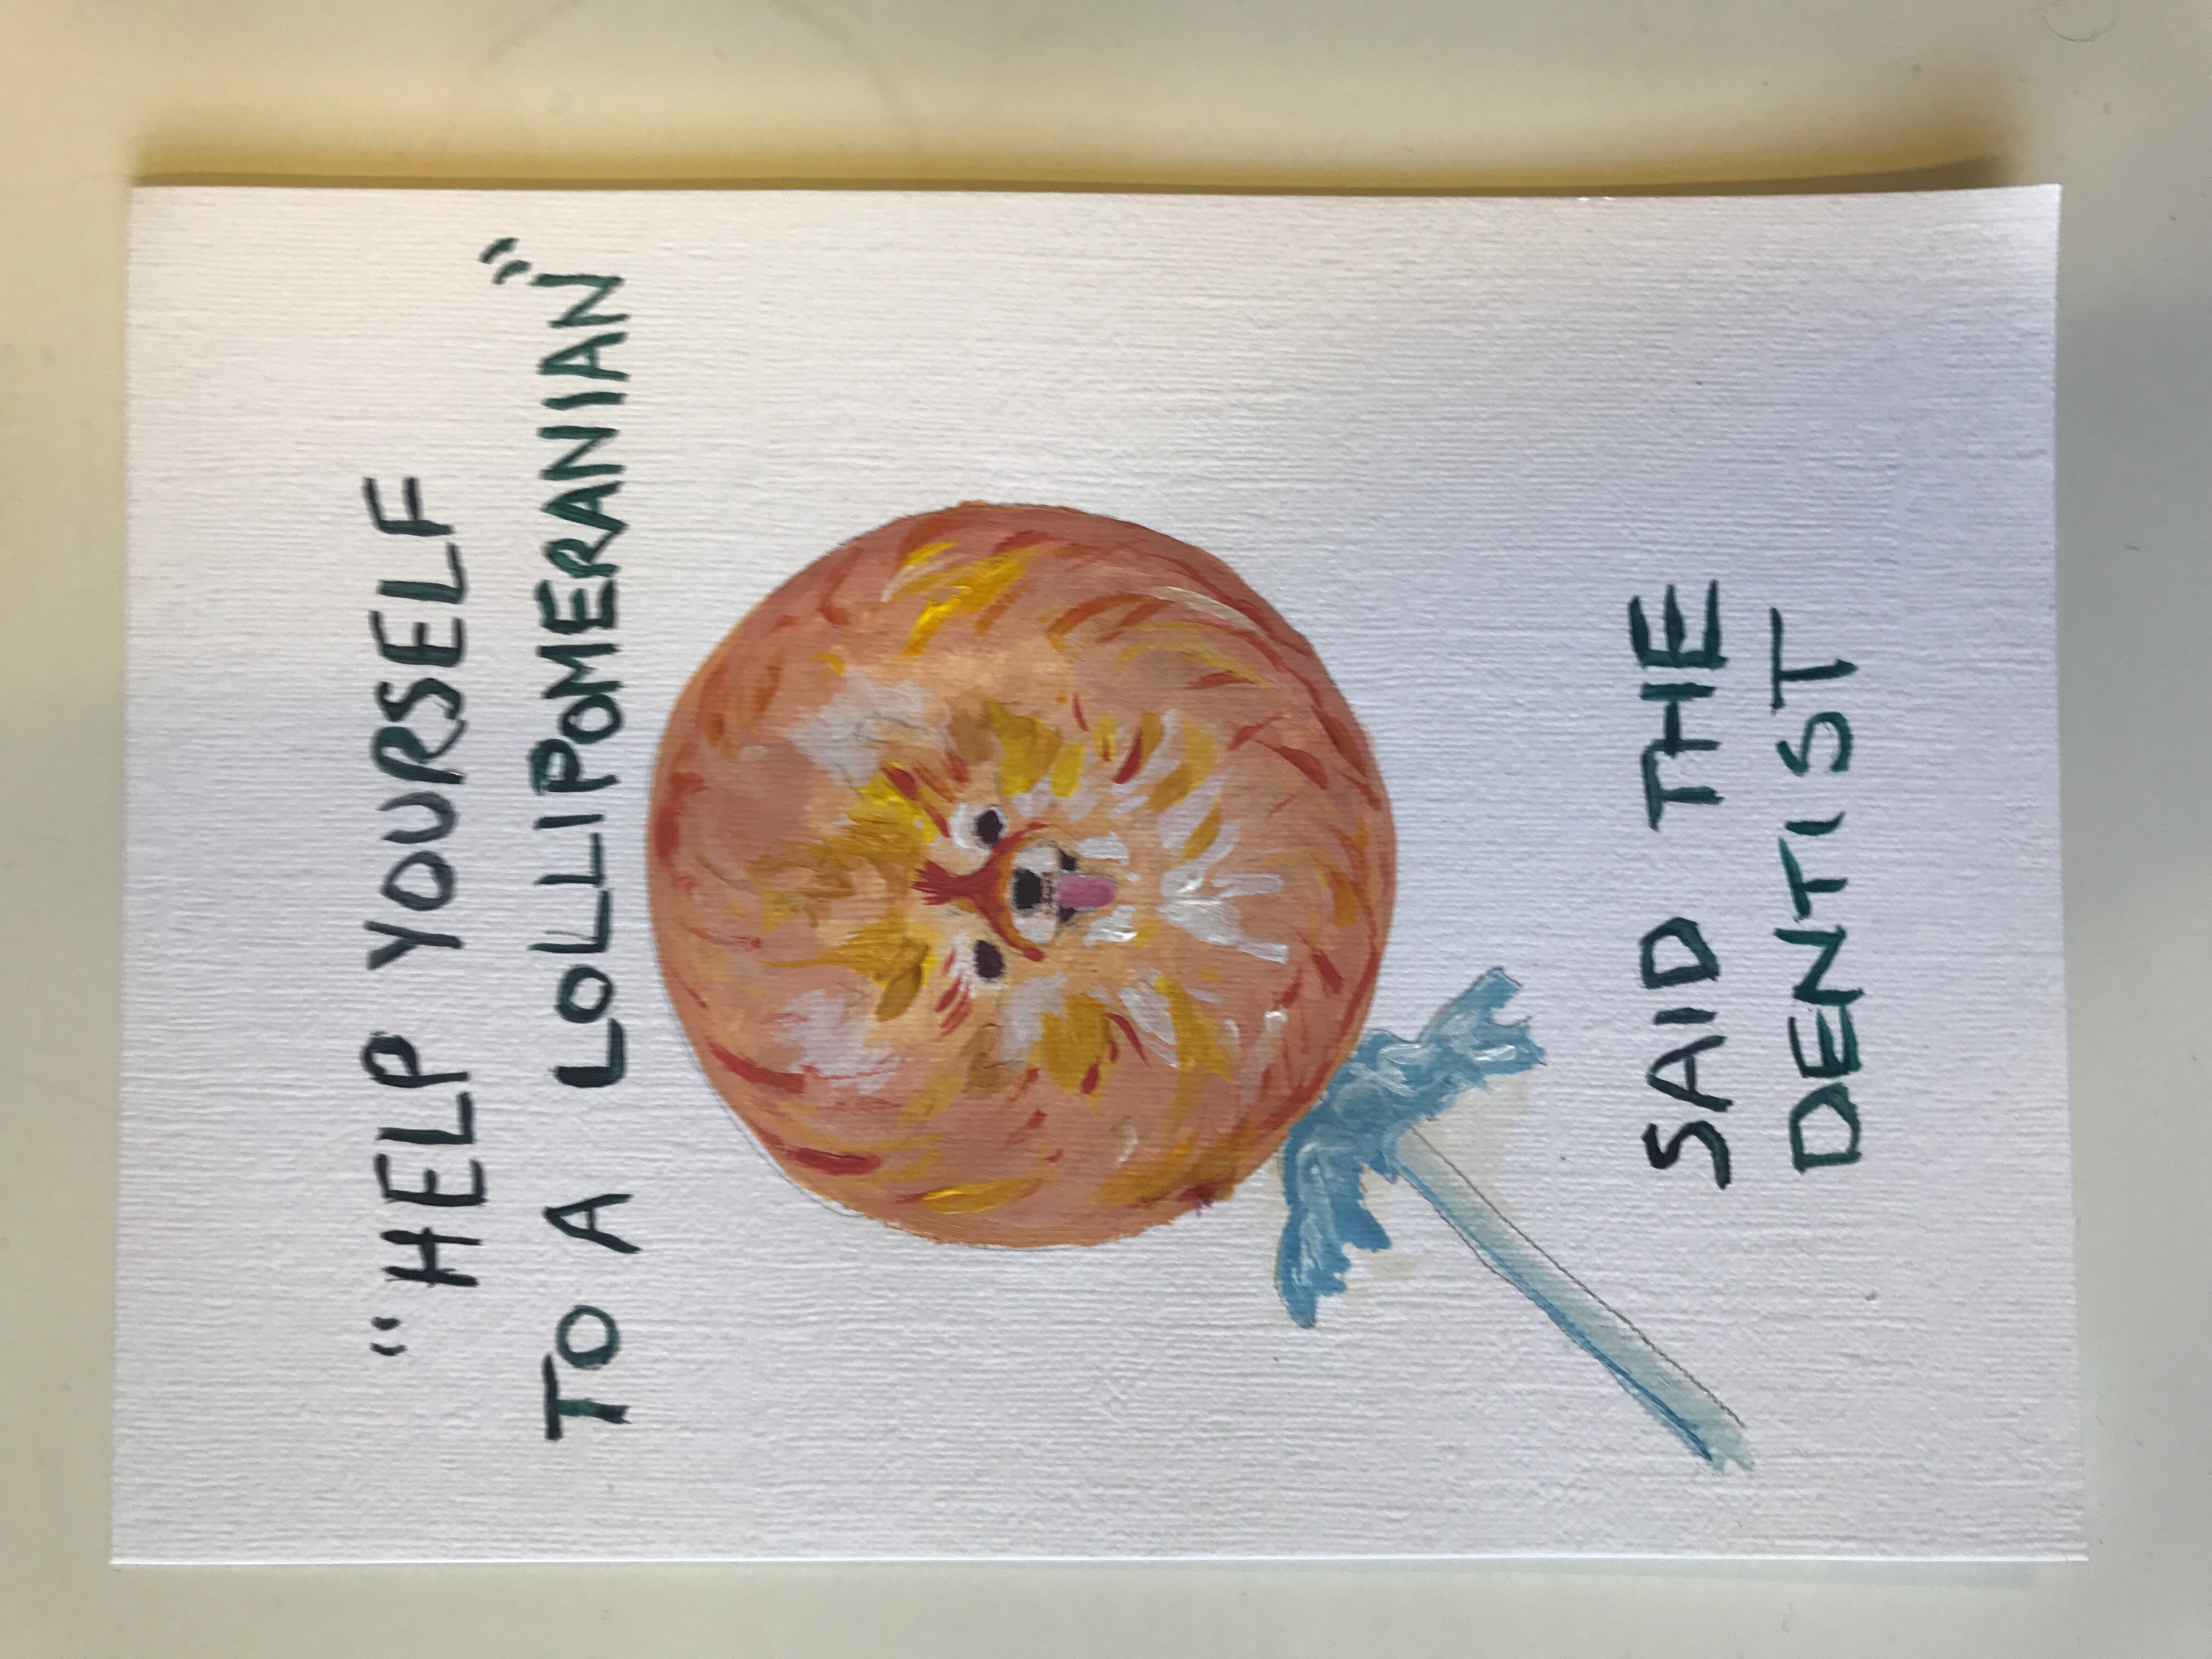 “HELP YOURSELF
TO A LOLLIPOMERANIAN”
SAID THE
DENTIST